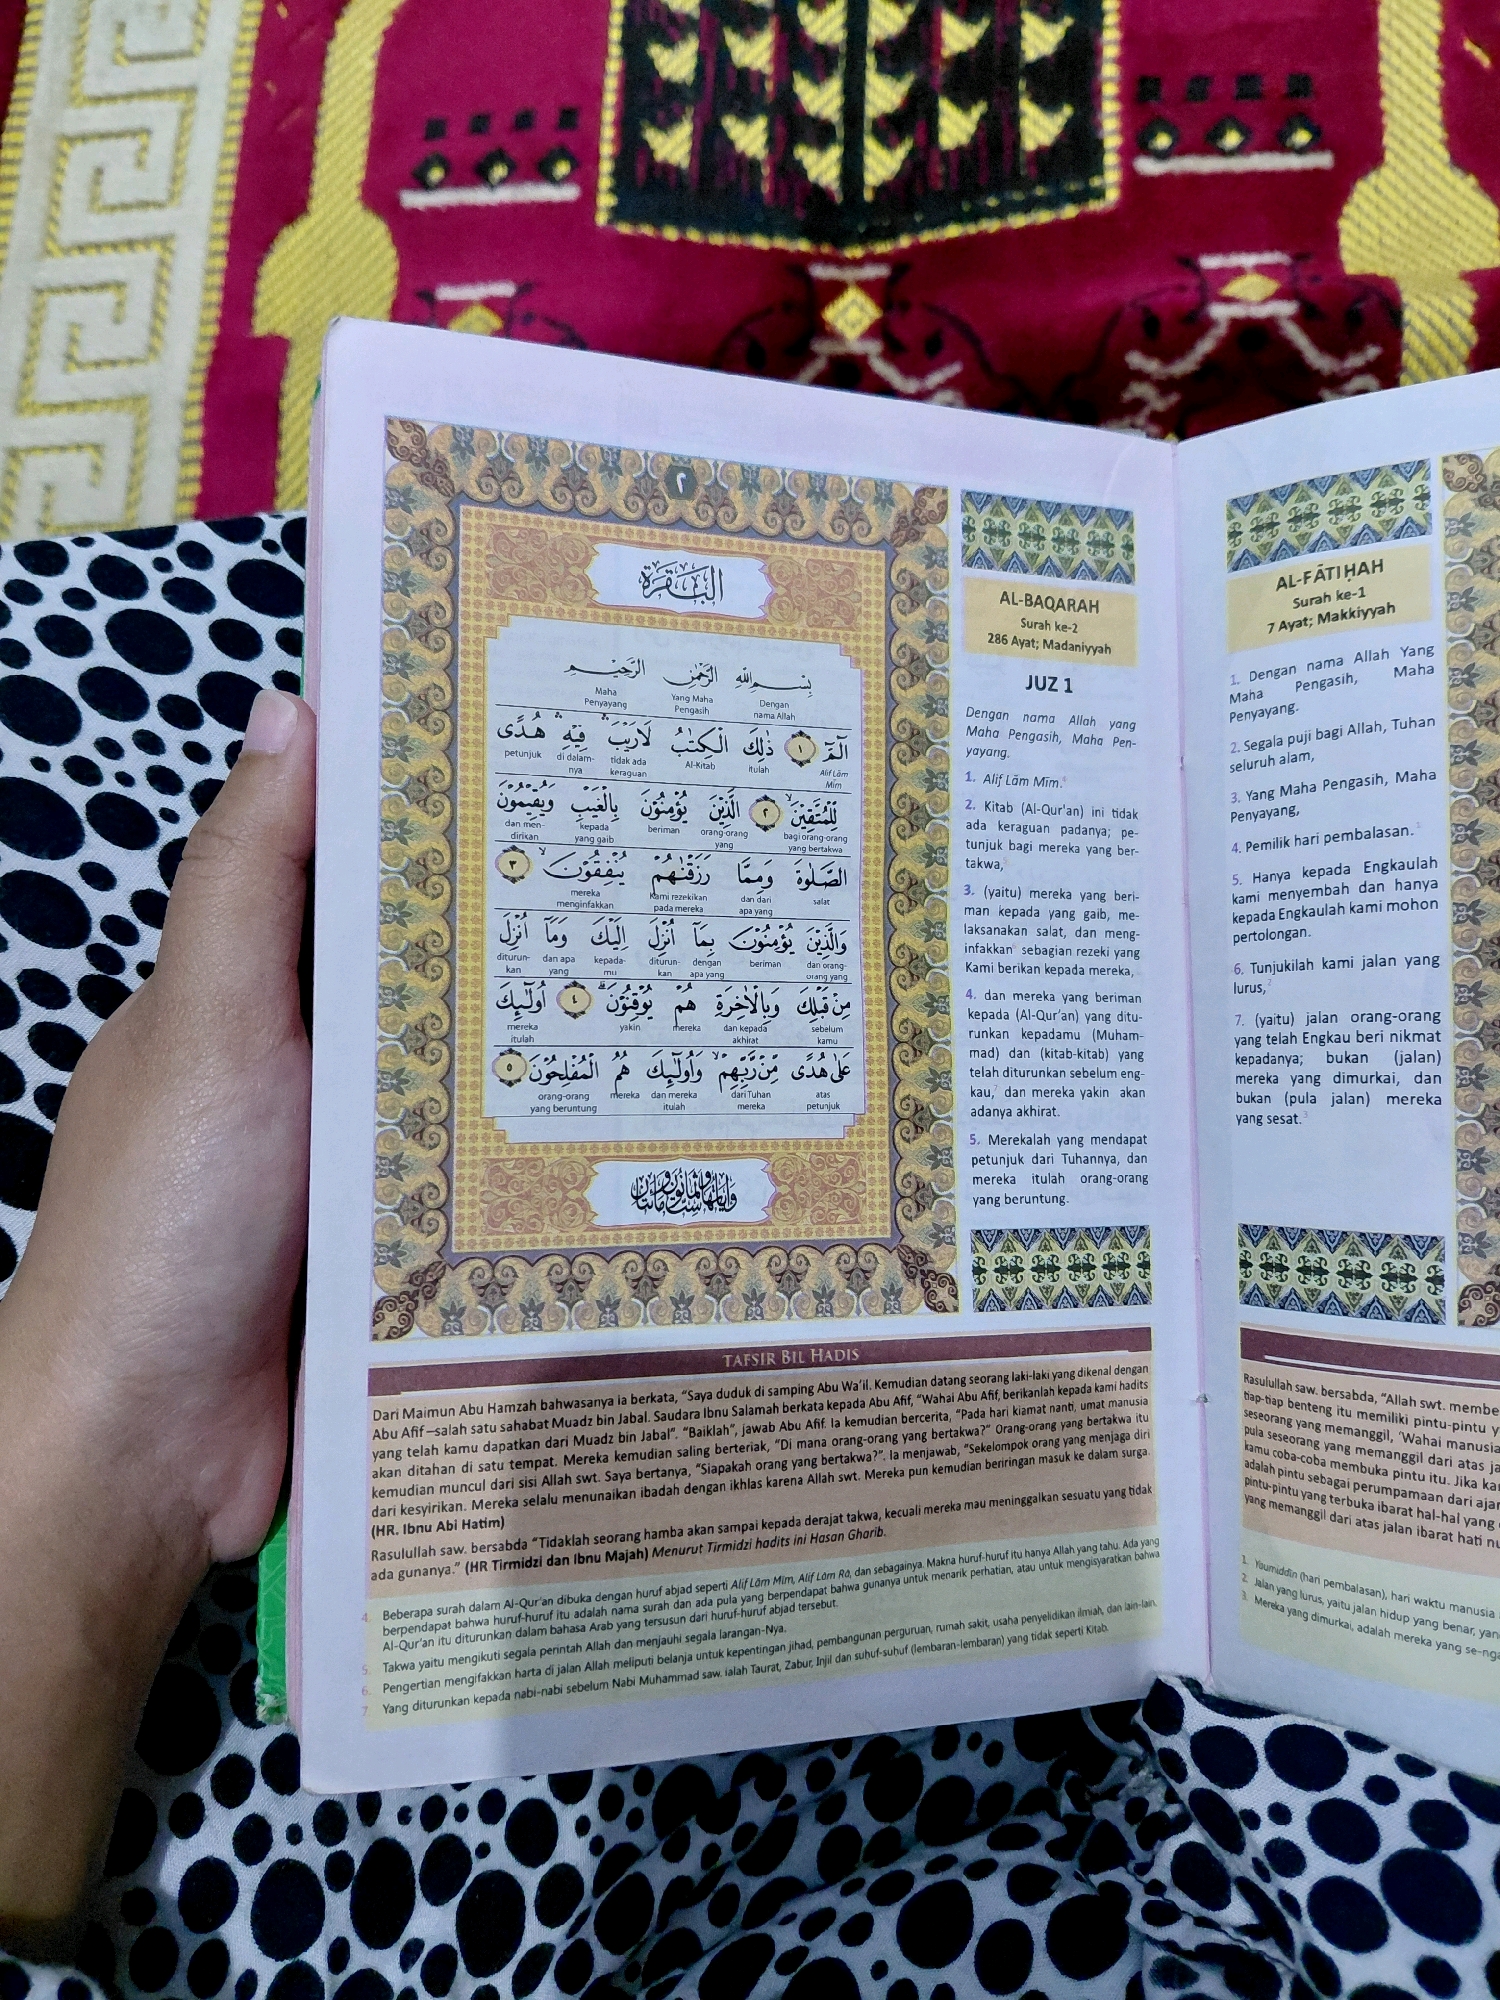 ٢
البقرة
بِسْمِ اللّٰهِ الرَّحْمٰنِ الرَّحِيْمِ
Dengan nama Allah
Yang Maha Pengasih
Maha Penyayang
الۤمّۤ ١ ذٰلِكَ الْكِتٰبُ لَا رَيْبَ ۛ فِيْهِ ۛ هُدًى
Alif Lām Mīm
itulah
Al-Kitab
tidak ada keraguan
di dalam-nya
petunjuk
لِّلْمُتَّقِيْنَۙ ٢ الَّذِيْنَ يُؤْمِنُوْنَ بِالْغَيْبِ وَيُقِيْمُوْنَ
bagi orang-orang yang bertakwa
orang-orang yang
beriman
kepada yang gaib
dan men-dirikan
الصَّلٰوةَ وَمِمَّا رَزَقْنٰهُمْ يُنْفِقُوْنَۙ ٣
salat
dan dari apa yang
kami rezekikan pada mereka
mereka menginfakkan
وَالَّذِيْنَ يُؤْمِنُوْنَ بِمَآ اُنْزِلَ اِلَيْكَ وَمَآ اُنْزِلَ
dan orang-orang yang
beriman
dengan apa yang
diturun-kan
kepada-mu
dan apa yang
diturun-kan
مِنْ قَبْلِكَ وَبِالْاٰخِرَةِ هُمْ يُوْقِنُوْنَۗ ٤ اُولٰۤىِٕكَ
sebelum kamu
dan kepada akhirat
mereka
yakin
mereka itulah
عَلٰى هُدًى مِّنْ رَّبِّهِمْۙ وَاُولٰۤىِٕكَ هُمُ الْمُفْلِحُوْنَ ٥
atas petunjuk
dari Tuhan mereka
dan mereka itulah
mereka
orang-orang yang beruntung
AL-BAQARAH
Surah ke-2
286 Ayat; Madaniyyah
JUZ 1
Dengan nama Allah yang
Maha Pengasih, Maha Pen-
yayang.
1. Alif Lām Mīm.⁴
2. Kitab (Al-Qur'an) ini tidak
ada keraguan padanya; pe-
tunjuk bagi mereka yang ber-
takwa,
3. (yaitu) mereka yang beri-
man kepada yang gaib, me-
laksanakan salat, dan meng-
infakkan⁶ sebagian rezeki yang
Kami berikan kepada mereka,
4. dan mereka yang beriman
kepada (Al-Qur'an) yang ditu-
runkan kepadamu (Muham-
mad) dan (kitab-kitab) yang
telah diturunkan sebelum eng-
kau,⁷ dan mereka yakin akan
adanya akhirat.
5. Merekalah yang mendapat
petunjuk dari Tuhannya, dan
mereka itulah orang-orang
yang beruntung.
TAFSIR BIL HADIS
Dari Maimun Abu Hamzah bahwasanya ia berkata, “Saya duduk di samping Abu Wa'il. Kemudian datang seorang laki-laki yang dikenal dengan
Abu Afif—salah satu sahabat Muadz bin Jabal. Saudara Ibnu Salamah berkata kepada Abu Afif, “Wahai Abu Afif, berikanlah kepada kami hadits
yang telah kamu dapatkan dari Muadz bin Jabal”. “Baiklah”, jawab Abu Afif. Ia kemudian bercerita, “Pada hari kiamat nanti, umat manusia
akan ditahan di satu tempat. Mereka kemudian saling berteriak, “Di mana orang-orang yang bertakwa?” Orang-orang yang bertakwa itu
kemudian muncul dari sisi Allah swt. Saya bertanya, “Siapakah orang yang bertakwa?”. Ia menjawab, “Sekelompok orang yang menjaga diri
dari kesyirikan. Mereka selalu menunaikan ibadah dengan ikhlas karena Allah swt. Mereka pun kemudian beriringan masuk ke dalam surga.
(HR. Ibnu Abi Hatim)
Rasulullah saw. bersabda “Tidaklah seorang hamba akan sampai kepada derajat takwa, kecuali mereka mau meninggalkan sesuatu yang tidak
ada gunanya.” (HR Tirmidzi dan Ibnu Majah) Menurut Tirmidzi hadits ini Hasan Gharib.
4. Beberapa surah dalam Al-Qur'an dibuka dengan huruf abjad seperti Alif Lām Mīm, Alif Lām Rā, dan sebagainya. Makna huruf-huruf itu hanya Allah yang tahu. Ada yang
berpendapat bahwa huruf-huruf itu adalah nama surah dan ada pula yang berpendapat bahwa gunanya untuk menarik perhatian, atau untuk mengisyaratkan bahwa
Al-Qur'an itu diturunkan dalam bahasa Arab yang tersusun dari huruf-huruf abjad tersebut.
5. Takwa yaitu mengikuti segala perintah Allah dan menjauhi segala larangan-Nya.
6. Pengertian menginfakkan harta di jalan Allah meliputi belanja untuk kepentingan jihad, pembangunan perguruan, rumah sakit, usaha penyelidikan ilmiah, dan lain-lain.
7. Yang diturunkan kepada nabi-nabi sebelum Nabi Muhammad saw. ialah Taurat, Zabur, Injil dan suhuf-suhuf (lembaran-lembaran) yang tidak seperti Kitab.
AL-FĀTIḤAH
Surah ke-1
7 Ayat; Makkiyyah
1. Dengan nama Allah Yang
Maha Pengasih, Maha
Penyayang.
2. Segala puji bagi Allah, Tuhan
seluruh alam,
3. Yang Maha Pengasih, Maha
Penyayang,
4. Pemilik hari pembalasan.¹
5. Hanya kepada Engkaulah
kami menyembah dan hanya
kepada Engkaulah kami mohon
pertolongan.
6. Tunjukilah kami jalan yang
lurus,²
7. (yaitu) jalan orang-orang
yang telah Engkau beri nikmat
kepadanya; bukan (jalan)
mereka yang dimurkai, dan
bukan (pula jalan) mereka
yang sesat.³
Rasulullah saw. bersabda, “Allah swt. membe
tiap-tiap benteng itu memiliki pintu-pintu y
seseorang yang memanggil, ‘Wahai manusia
pula seseorang yang memanggil dari atas ja
kamu coba-coba membuka pintu itu. Jika ka
adalah pintu sebagai perumpamaan dari ajar
pintu-pintu yang terbuka ibarat hal-hal yang
yang memanggil dari atas jalan ibarat hati nu
1. Youmiddin (hari pembalasan), hari waktu manusia
2. Jalan yang lurus, yaitu jalan hidup yang benar, yan
3. Mereka yang dimurkai, adalah mereka yang se-nga